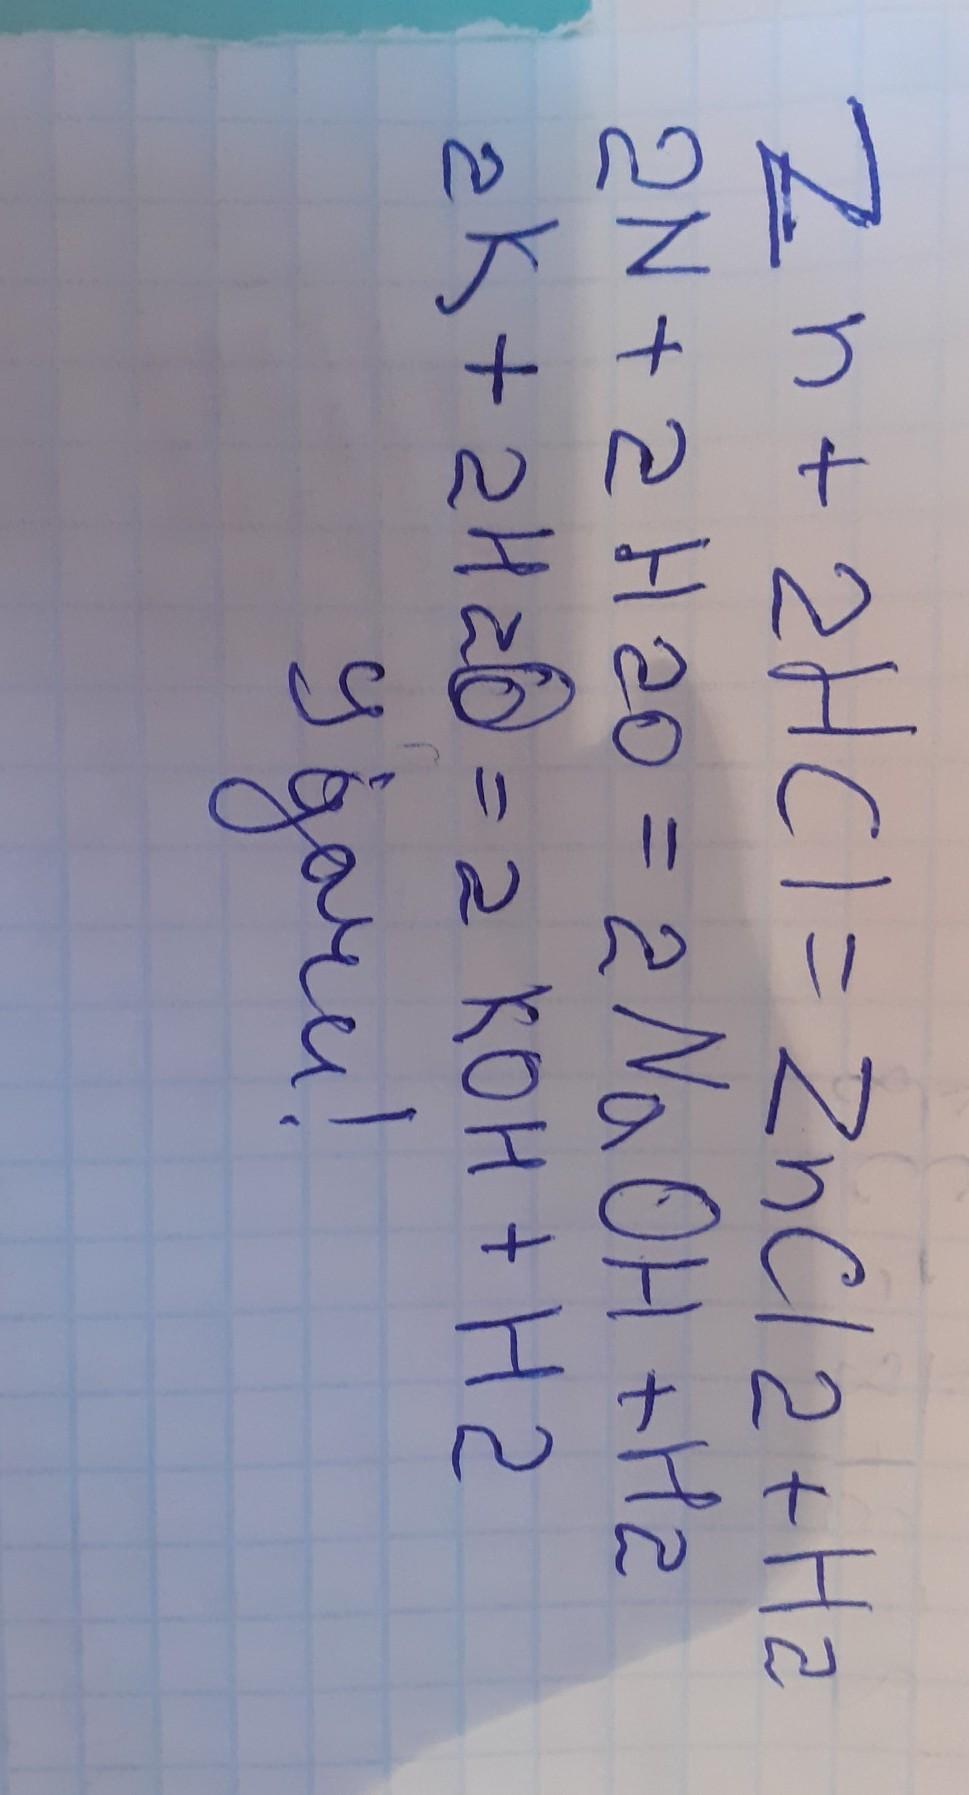 Zn + 2HCl = ZnCl2 + H2
2N + 2H2O = 2NaOH + H2
2K + 2H2O = 2KOH + H2
Удачи!